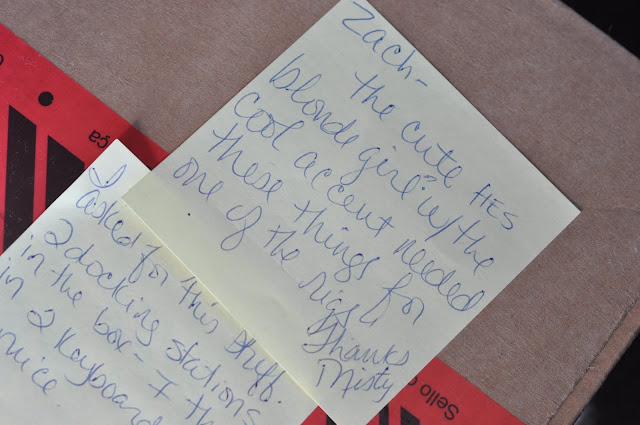 Zach-
the cute HES
blonde girl w/the
cool accent needed
these things for
one of the rigs.
Thanks
Misty
I
asked for this stuff.
2 docking stations
in the box - I th
in 2 Keyboard
mice.
ça
Sello